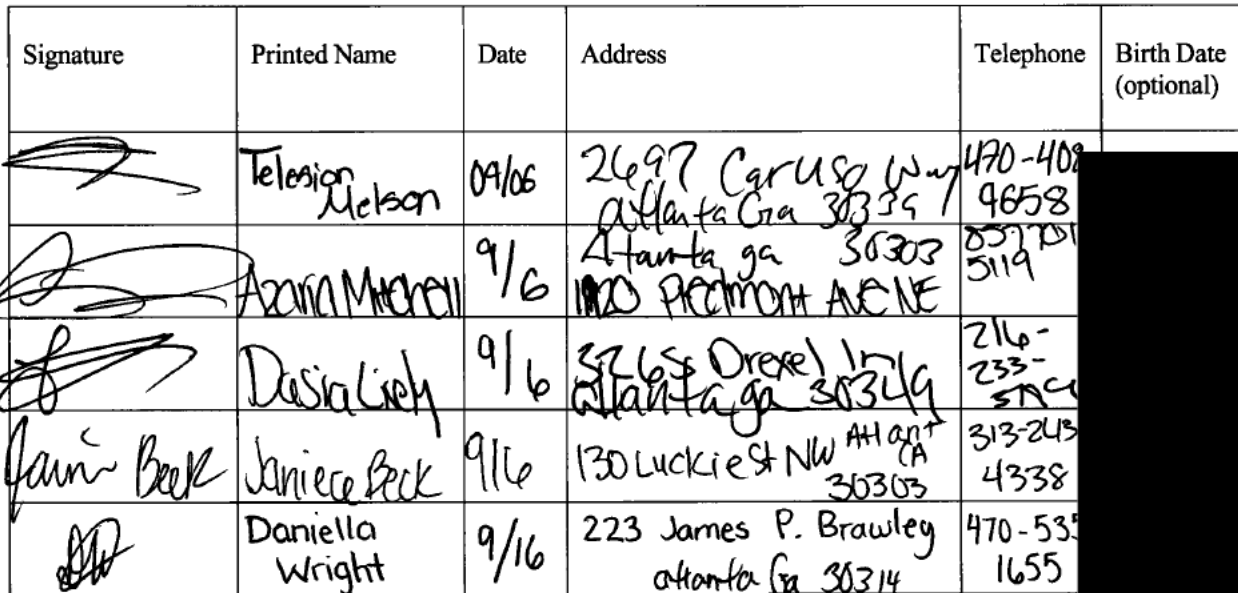 Signature Printed Name Date Address Telephone Birth Date
(optional)
Telesion
Melson
09/06
2697 Caruso Way
atlanta Ga 30339
470-408
9658
Azaria Mitchell
9/6
Atanta ga 30303
Piedmont AVE NE
5119
9/6
Drexel ln
atlanta, ga 30349
216-
233-
Jani Beck
Janiece Beck
9/6
130 Luckie St NW Atlant
GA
30303
313-243
4338
Daniella
Wright
9/16
223 James P. Brawley
atlanta Ga 30314
470-535
1655